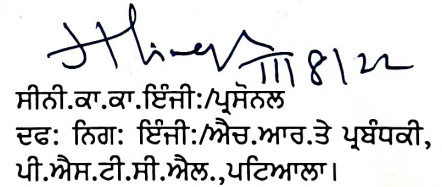 III/8/22
ਸੀਨੀ.ਕਾ.ਕਾ.ਇੰਜੀ:/ਪ੍ਰਸੋਨਲ
ਦਫ: ਨਿਗ: ਇੰਜੀ:/ਐਚ.ਆਰ.ਤੇ ਪ੍ਰਬੰਧਕੀ,
ਪੀ.ਐਸ.ਟੀ.ਸੀ.ਐਲ.,ਪਟਿਆਲਾ।